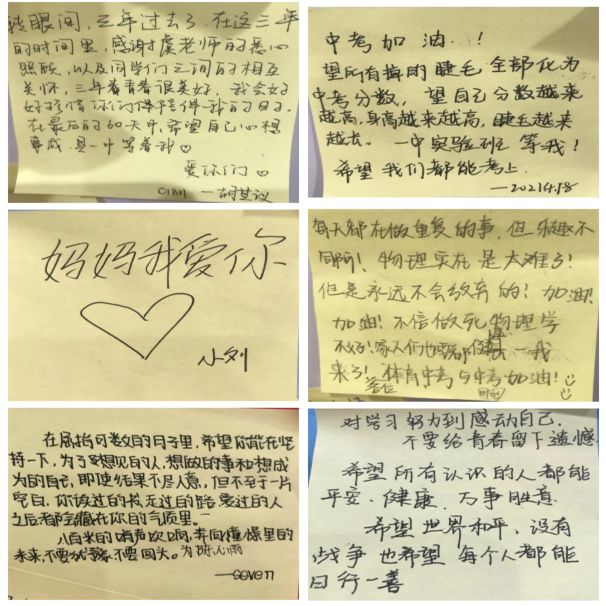 转眼间，三年过去了，在这三年
的时间里，感谢虞老师的悉心
照顾，以及同学们之间的相互
关怀，三年看青春很美好，我会好
好珍惜你们陪伴我的日子。
在最后的60天中，希望自己心想
事成，县一中等着我♡
爱你们♡
中考加油！！
望所有掉的睫毛全部化为
中考分数，望自己分数越来
越高，身高越来越高，睫毛越来
越长。一中实验班 等我！
希望我们都能考上
—2021.4.18
妈妈我爱你
小刘
每天都在做重复的事，但乐趣不
同啊！物理实在是太难了！
但是永远不会放弃的！加油！
加油！不信做死物理学
不好！家人们也要都 一我
来了！体育中考与中考加油！
在屈指可数的日子里，希望你能在坚
持一下，为了要想见的人，想做的事和想成
为的自己，即使结果不尽人意，但不至于一片
空白，你读过的书走过的路爱过的人
之后都会藏在你的气质里。
八百米的哨声吹响，奔向憧憬里的
未来，不要犹豫，不要回头。
—seven
对学习努力到感动自己，
不要给青春留下遗憾
希望所有认识的人都能
平安、健康、万事胜意
希望世界和平，没有
战争 也希望每个人都能
日行一善